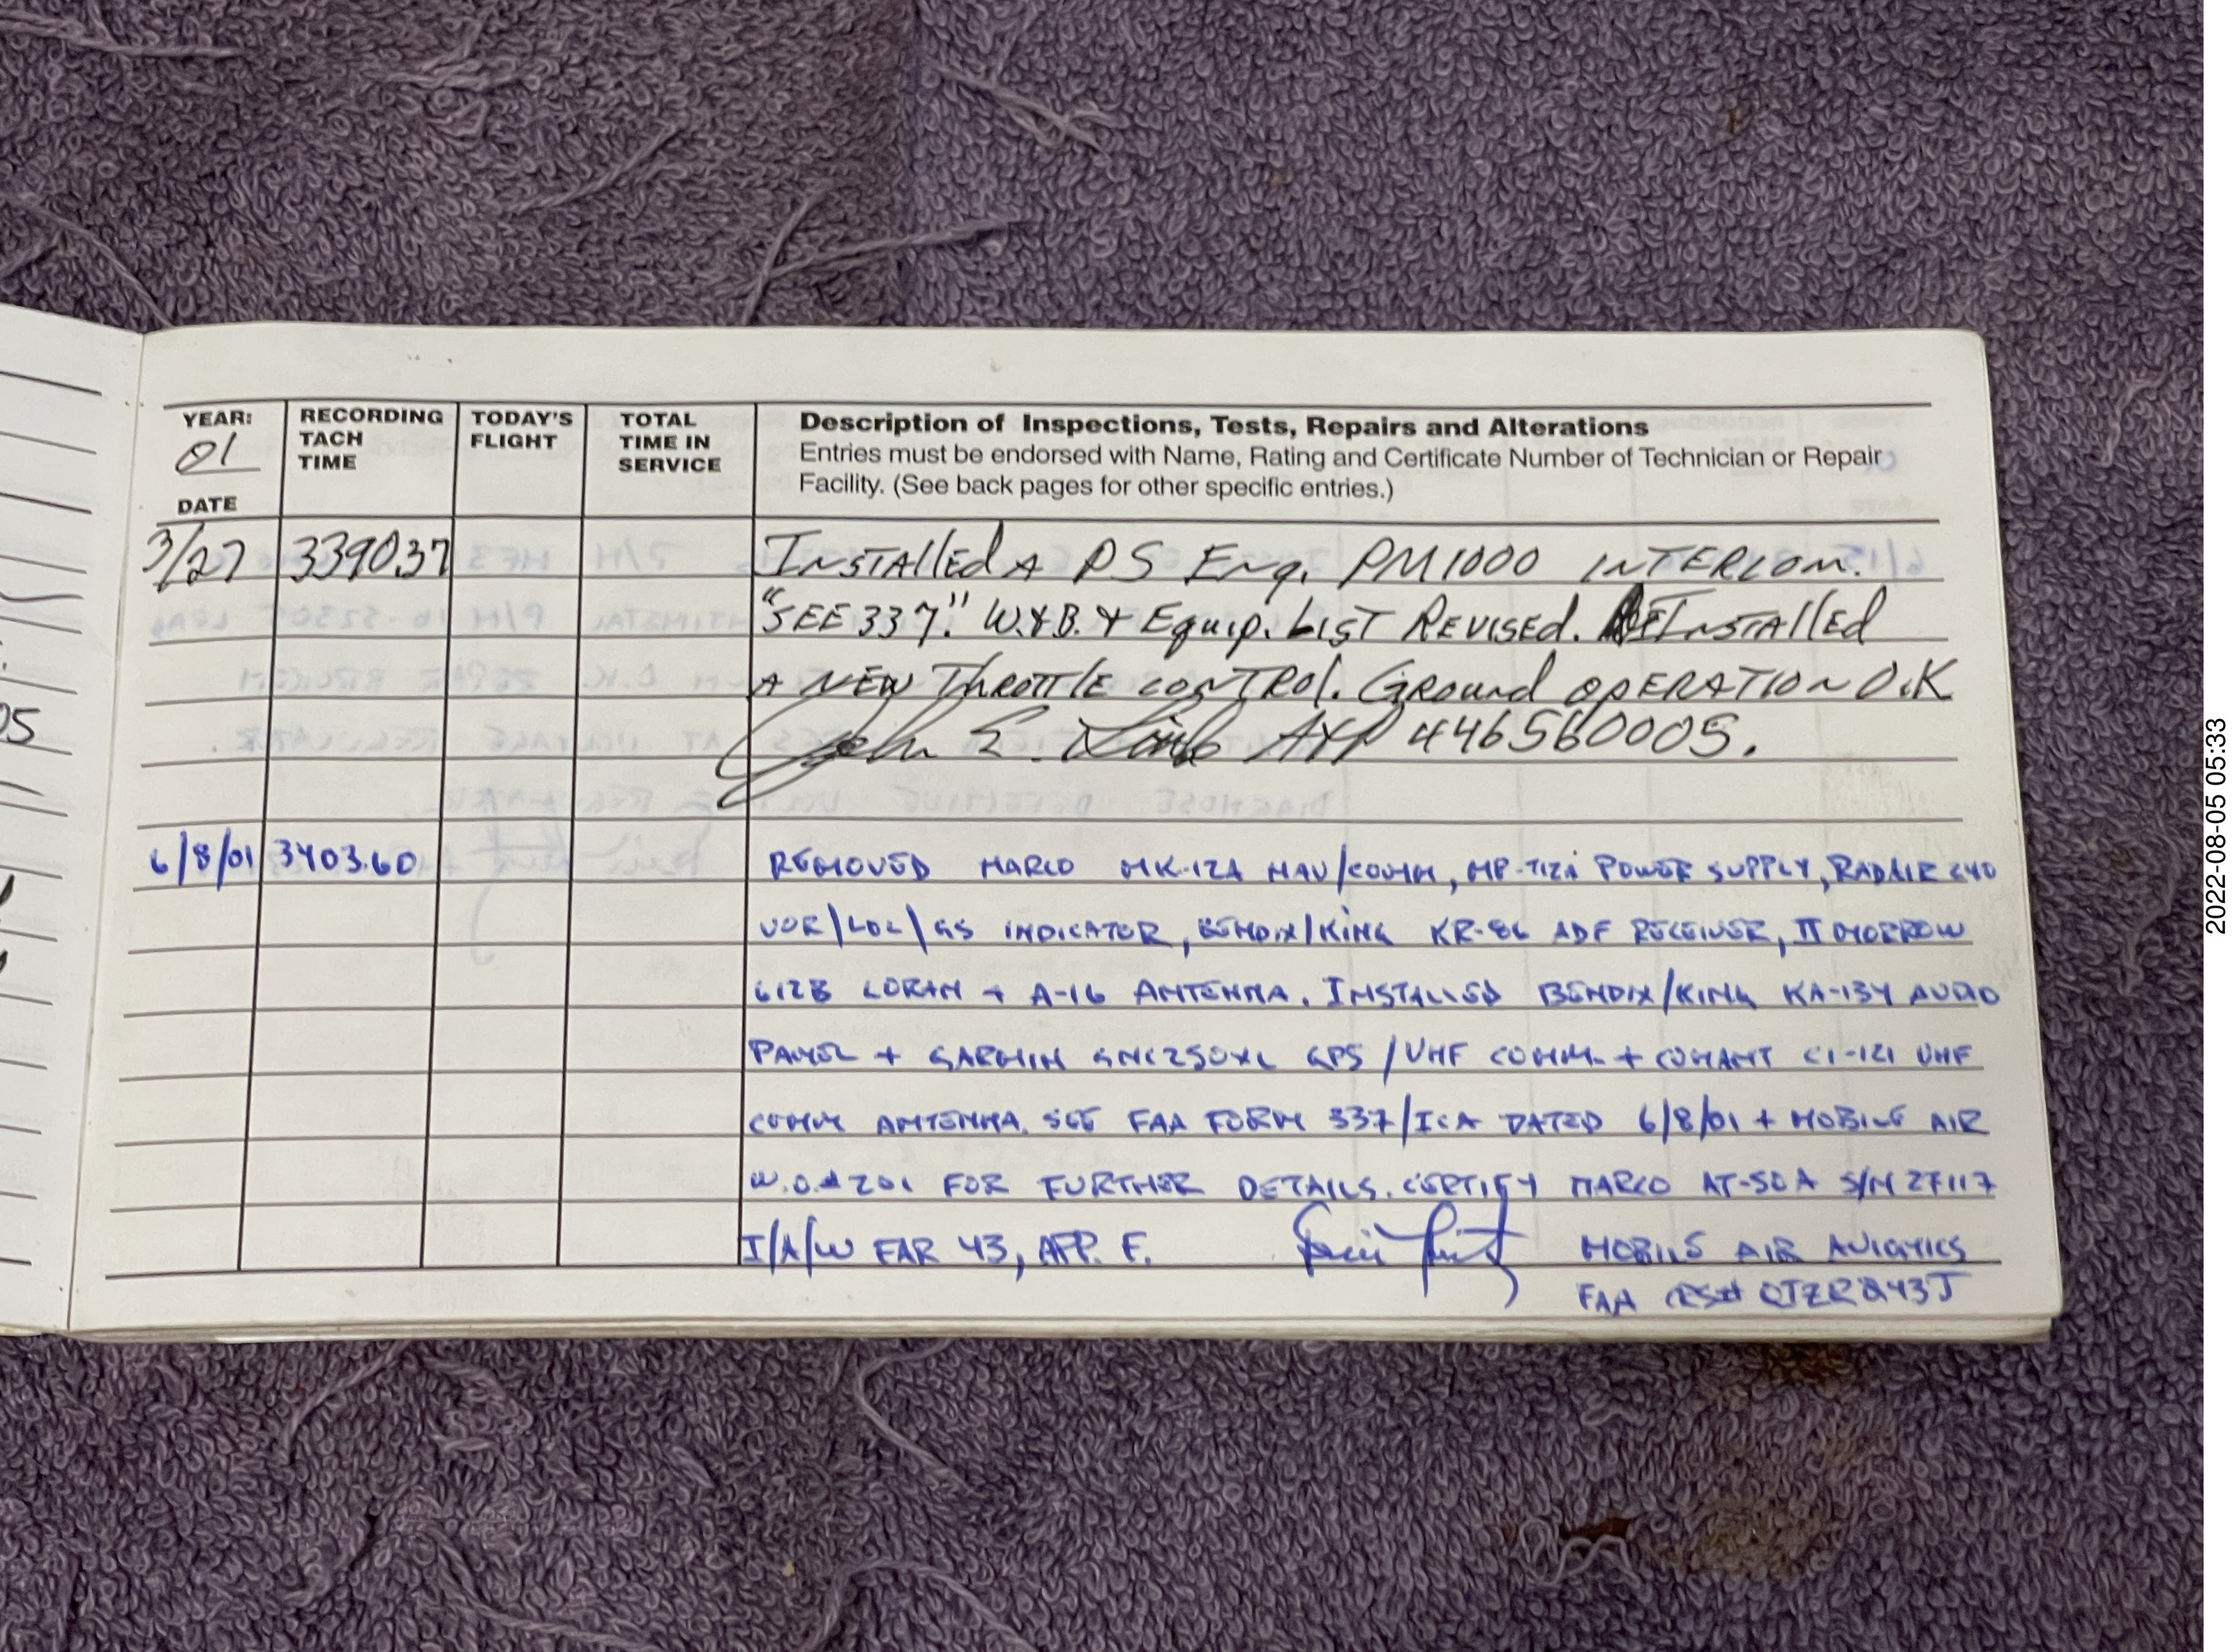 YEAR: 01 DATE
RECORDING TACH TIME
TODAY'S FLIGHT
TOTAL TIME IN SERVICE
Description of Inspections, Tests, Repairs and Alterations
Entries must be endorsed with Name, Rating and Certificate Number of Technician or Repair
Facility. (See back pages for other specific entries.)
3/27 3390.37 Installed A PS Eng. PM1000 INTERCOM.
"SEE 337." W.&B. & Equip. List Revised. Installed
A NEW Throttle control. Ground operation O.K
John E. A&P 446560005.
6/8/01 3403.60 REMOVED NARCO MK-12A NAV/COMM, POWER SUPPLY,
VOR/LOC/GS INDICATOR, BENDIX/KING KR-86 ADF RECEIVER, II MORROW
612B LORAN + A-16 ANTENNA. INSTALLED BENDIX/KING KA-134 AUDIO
PANEL + GARMIN GNC250XL GPS/VHF COMM. + COMANT CI-121 VHF
COMM ANTENNA. SEE FAA FORM 337/ICA DATED 6/8/01 + MOBILE AIR
W.O.# 201 FOR FURTHER DETAILS. CERTIFY NARCO AT-50A S/N 27117
I/A/W FAR 43, APP. F. MOBILE AIR AVIONICS
FAA CRS#
05
2022-08-05 05:33